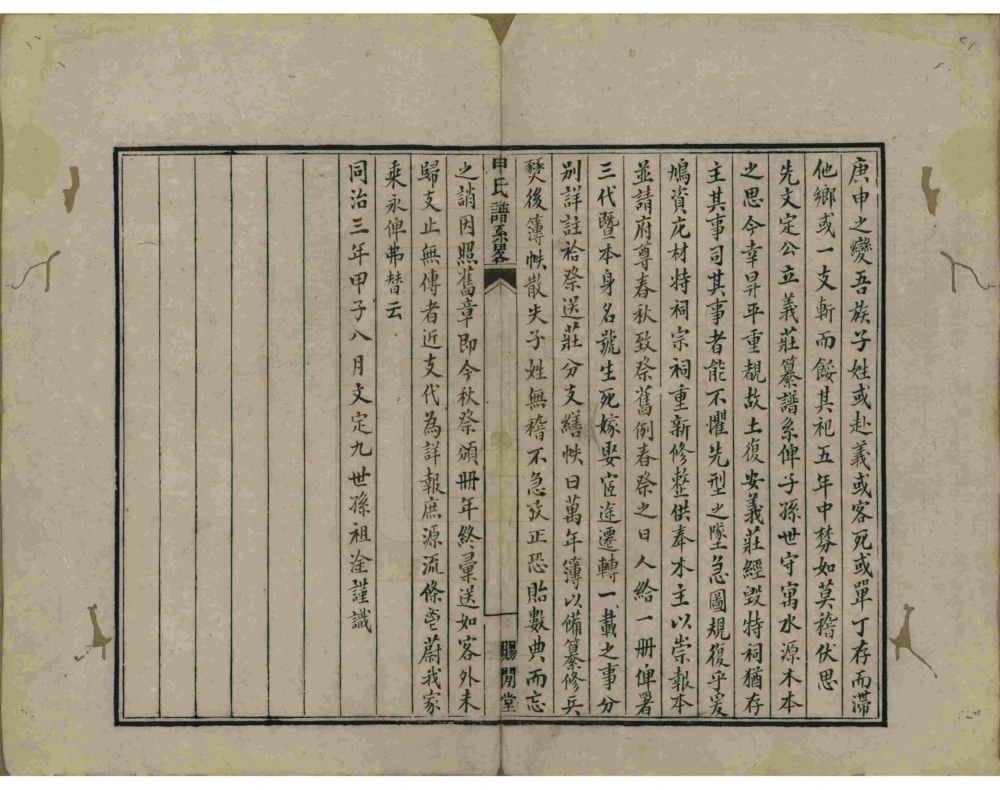 庚申之變吾族子姓或赴義或客死或單丁存而滯
他鄉或一支斬而餒其祀五年中棼如莫稽伏思
先文定公立義莊纂譜系俾子孫世守寓水源木本
之思今幸昇平重覩故土復安義莊經毀特祠猶存
主其事司其事者能不懼先型之墜急圖規復乎爰
鳩資庀材特祠宗祠重新修整供奉木主以崇報本
並請府尊春秋致祭舊例春祭之日人給一冊俾署
三代暨本身名號生死嫁娶宦途遷轉一載之事分
別詳註祫祭送莊分支繕帙曰萬年簿以備纂修兵
燹後簿帙散失子姓無稽不急攷正恐貽數典而忘
申氏譜系畧
賜閒堂
之誚因照舊章即今秋祭頒冊年終彙送如客外未
歸支止無傳者近支代為詳報庶源流條邕蔚我家
乘永俾弗替云
同治三年甲子八月文定九世孫祖淦謹識